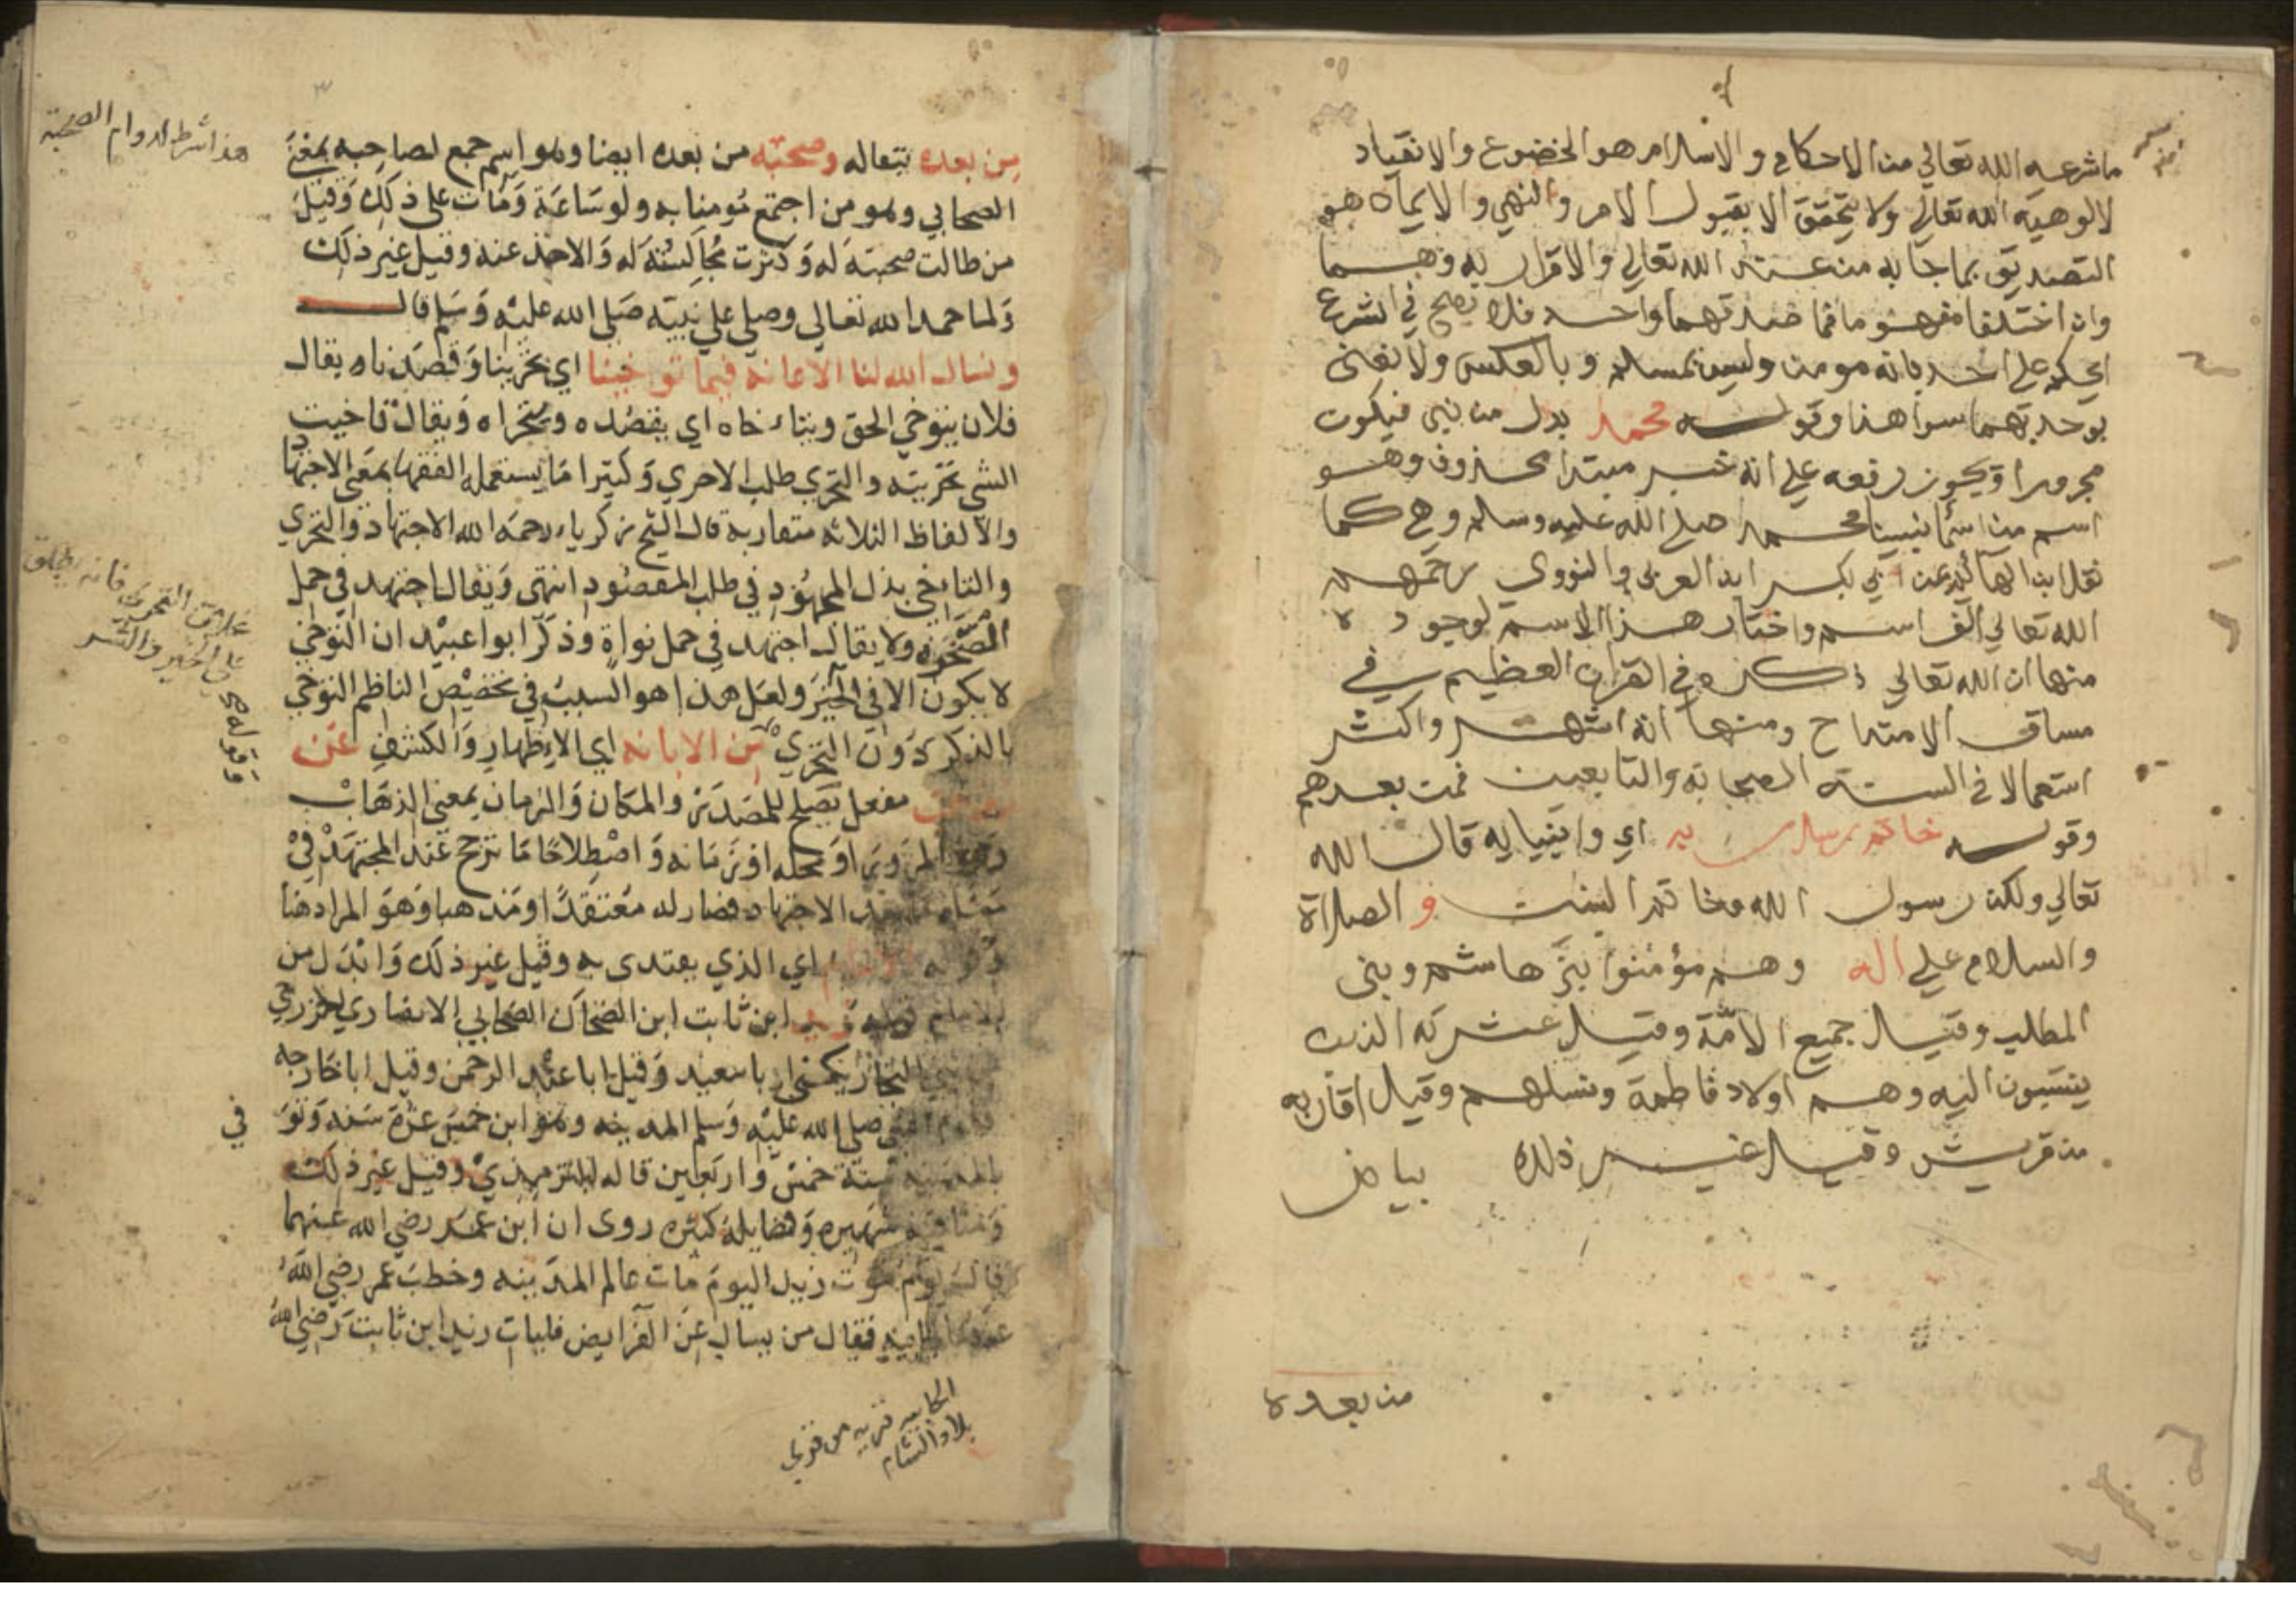 ما شرعه الله تعالي من الاحكام والاسلام هو الخضوع والانقياد
لالوهيه الله تعالي ولا يتحقق الا بقبول الامر والنهي والايمان هو
التصديق بما جا به من عند الله تعالي والاقرار به وهما
وان اختلفا مفهوما فما صدقهما واحد فلا يصح في الشرع
ان يحكم علي احد بانه مومن وليس بمسلم وبالعكس ولا نعني
بوحدتهما سوا هذا وقوله محمد بدل من نبي فيكون
مجرورا ويجوز رفعه علي انه خبر مبتدا محذوف وهو
اسم من اسما نبينا محمد صلي الله عليه وسلم وهي كما
نقل ابن الهائم عن ابي بكر ابن العربي والنووي رحمهم
الله تعالي الف اسم واختار هذا الاسم لوجوه
منها ان الله تعالي ذكره في القران العظيم في
مساق الامتداح ومنها انه اشهر واكثر
استعمالا في السنة الصحابة والتابعين فمن بعدهم
وقوله خاتم رسل ربه اي وانبيايه قال الله
تعالي ولكن رسول الله وخاتم النبيين و الصلاة
والسلام علي اله وهم مؤمنوا بني هاشم وبني
المطلب وقيل جميع الامة وقيل عشرته الذين
ينتسبون اليه وهم اولاد فاطمة ونسلهم وقيل اقاربه
من قريش وقيل غير ذلك بياض
من بعده
من بعده تبعا له وصحبه من بعده ايضا وهو اسم جمع لصاحبه بمعني
الصحابي وهو من اجتمع مومنا به ولو ساعة ومات على ذلك وقيل
من طالت صحبته له وكثرت مجالسته له والاخذ عنه وقيل غير ذلك
ولما حمد الله تعالي وصلي علي نبيه صلي الله عليه وسلم قال
ونسال الله لنا الاعانه فيما توخينا اي تحرينا وقصدناه يقال
فلان يتوخي الحق ويتاخاه اي يقصده ويتحراه ويقال تاخيت
الشي تحريته والتحري طلب الاحري وكثيرا ما يستعمله الفقها بمعني الاجتهاد
والالفاظ الثلاثه متقاربة قال الشيخ زكرياء رحمه الله الاجتهاد والتحري
والتاخي بذل المجهود في طلب المقصود انتهى ويقال اجتهد في حمل
الصخرة ولا يقال اجتهد في حمل نواة وذكر ابو اعبيد ان التوخي
لا يكون الا في الخير ولعل هذا هو السبب في تخصيص الناظم التوخي
بالذكر دون التحري من الابانه اي الاظهار والكشف عن
مفعل يصلح للمصدر والمكان والزمان بمعني الذهاب
المرور او محله او زمانه واصطلاحا ما ترجح عند المجتهد في
الاجتهاد فصار له معتقدا ومذهبا وهو المراد هنا
اي الذي يقتدى به وقيل غير ذلك وابدل من
الامام قوله زيد ابن ثابت ابن الضحاك الصحابي الانصاري الخزرجي
النجار يكنى ابا سعيد وقيل ابا عبد الرحمن وقيل ابا خارجه
النبي صلي الله عليه وسلم المدينه وهو ابن خمس عشرة سنه وتو
في
بالمدينه سنة خمس واربعين قاله الترمذي وقيل غير ذلك
ومناقبه شهيره وفضايله كثيره روى ان ابن عمر رضي الله عنهما
قال يوم موت زيد اليوم مات عالم المدينه وخطب عمر رضي الله
عنه بالجابيه فقال من يسال عن الفرايض فليات زيد ابن ثابت رضي الله
هذا شرط لدوام الصحبة
خلاف التحري فانه يطلق
علي الخير والشر
الجابيه قريه من قري
بلاد الشام